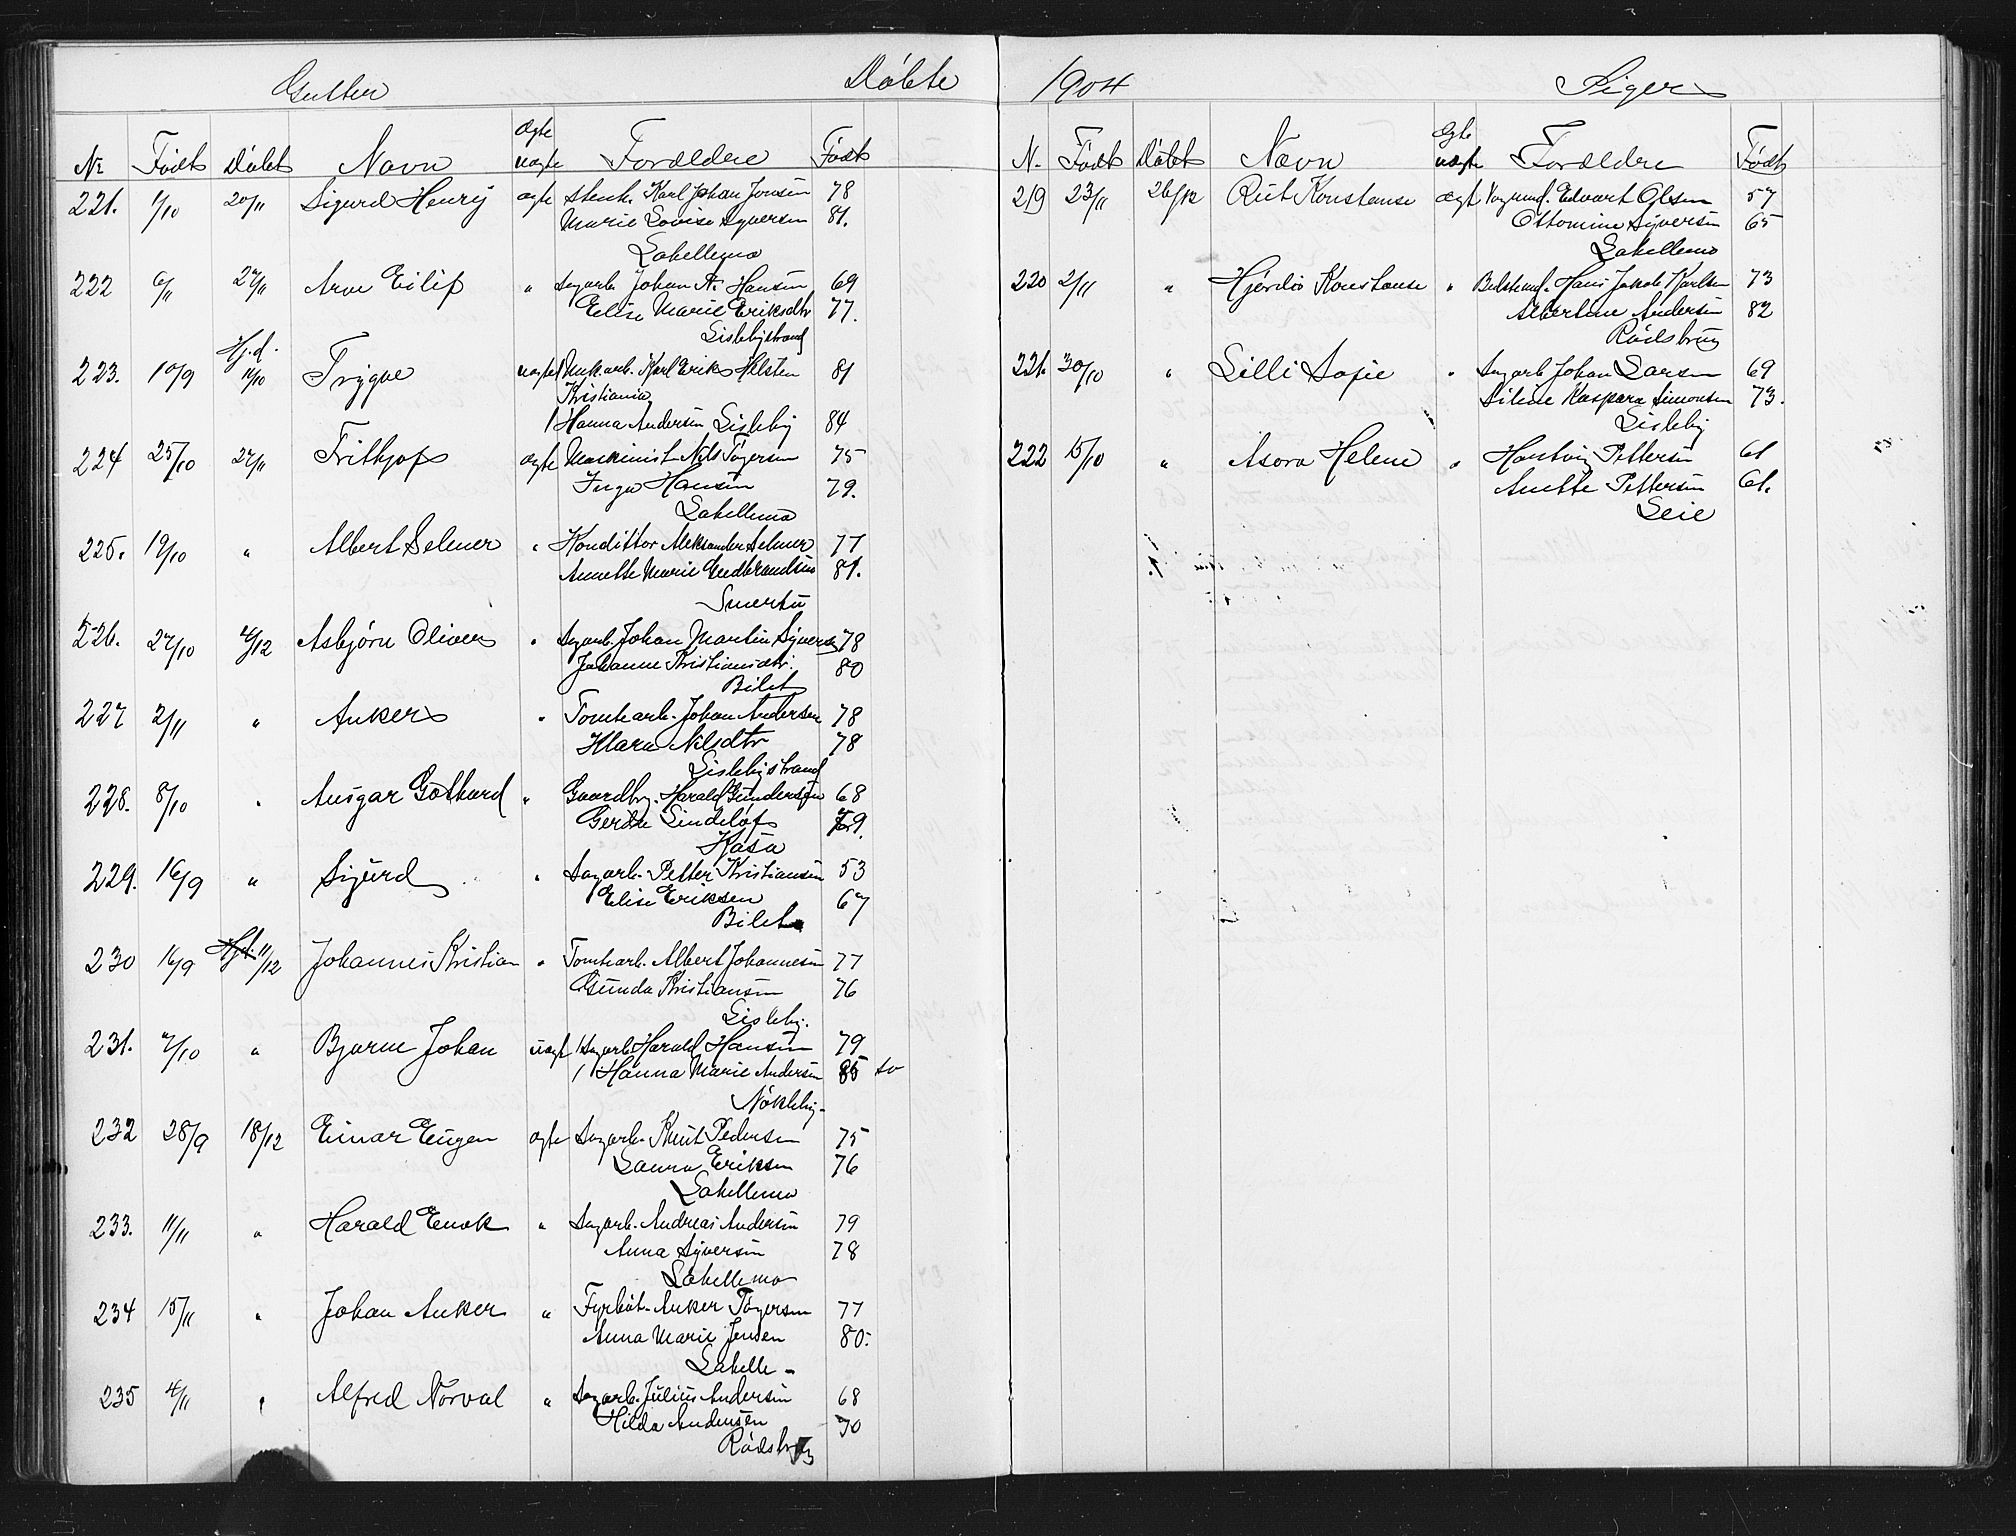 Gutter Døbte
Nr Født Døbt Navn Ægte uægte Forældre Født
221. 1/10 20/11 Sigurd Henry ægte Stenh. Karl Johan Jensen 78
Marie Lovise Syversen 81.
Labellemo
222 6/11 27/11 Arve Eilif " Sagarb. Johan A. Hansen 69
Elise Marie Eriksdtr 77.
Lislebystrand
Hj.d.
223. 10/9 11/10 Trygve uægte Murarb. Karl Eriks Helsten 81
Kristiania
Hanna Andersen Lisleby 84
224 25/10 27/11 Frithjof ægte Maskinist Nils Tøgersen 75
Inga Hansen 79.
Labellemo
225. 19/10 " Albert Selmer " Kondittor Aleksander Selmer 77
Annette Marie Gudbrandsen 81.
Smertu
226. 27/10 4/12 Asbjørn Oliver " Sagarb. Johan Martin Syversen 78
Johanne Kristiansdtr. 80
Bilet
227 2/11 " Anker " Tomtearb. Johan Andersen 78
Klara Nilsdtr 78
Lislebystrand
228. 8/10 " Ansgar Gothard " Gaardbr. Harald Gundersen 68
Gerda Lindeløf 79.
Kasa
229. 16/9 " Sigurd " Sagarb. Petter Kristiansen 53
Elise Eriksen 67
Bilet
230 16/9 Hjd. 11/12 Johannes Kristian " Tomtearb. Albert Johannesen 77
Gunda Kristiansen 76
Lisleby.
231. 7/10 " Bjarne Johan uægt Sagarb Harald Hansen 79
Hanna Marie Andersen 85 to
Nøkleby
232 28/9 18/12 Einar Eugen ægte Sagarb. Knut Pedersen 75
Laura Eriksen 76
Labellemo
233. 11/11 " Harald Enok " Sagarb. Andreas Andersen 79
Anna Syversen 78
Labellemo
234 15/11 " Johan Anker " Fyrbøt. Anker Tøgersen 77
Anna Marie Jensen 80.
Labelle -
235 4/11 " Alfred Norval " Sagarb. Julius Andersen 68
Hilda Andersen 70
Rødsbrug
1904 Piger
N. Født Døbt Navn Ægte uægte Forældre Født
219 23/11 26/12 Rut Konstanse ægt Vogmd. Edvart Olsen 57
Ottomine Syversen 65
Labellemo
220 2/11 " Hjørdis Konstanse " Hans Jakob Karlsen 73
Albertine Andersen 82
Rødsbrug
221. 30/10 " Lilli Sofie " Sagarb Johan Larsen 69
Siline Kaspara Simonsen 73.
Lisleby
222 15/10 " Asora Helene " Hartvig Pettersen 61
Anette Pettersen 61.
Leie